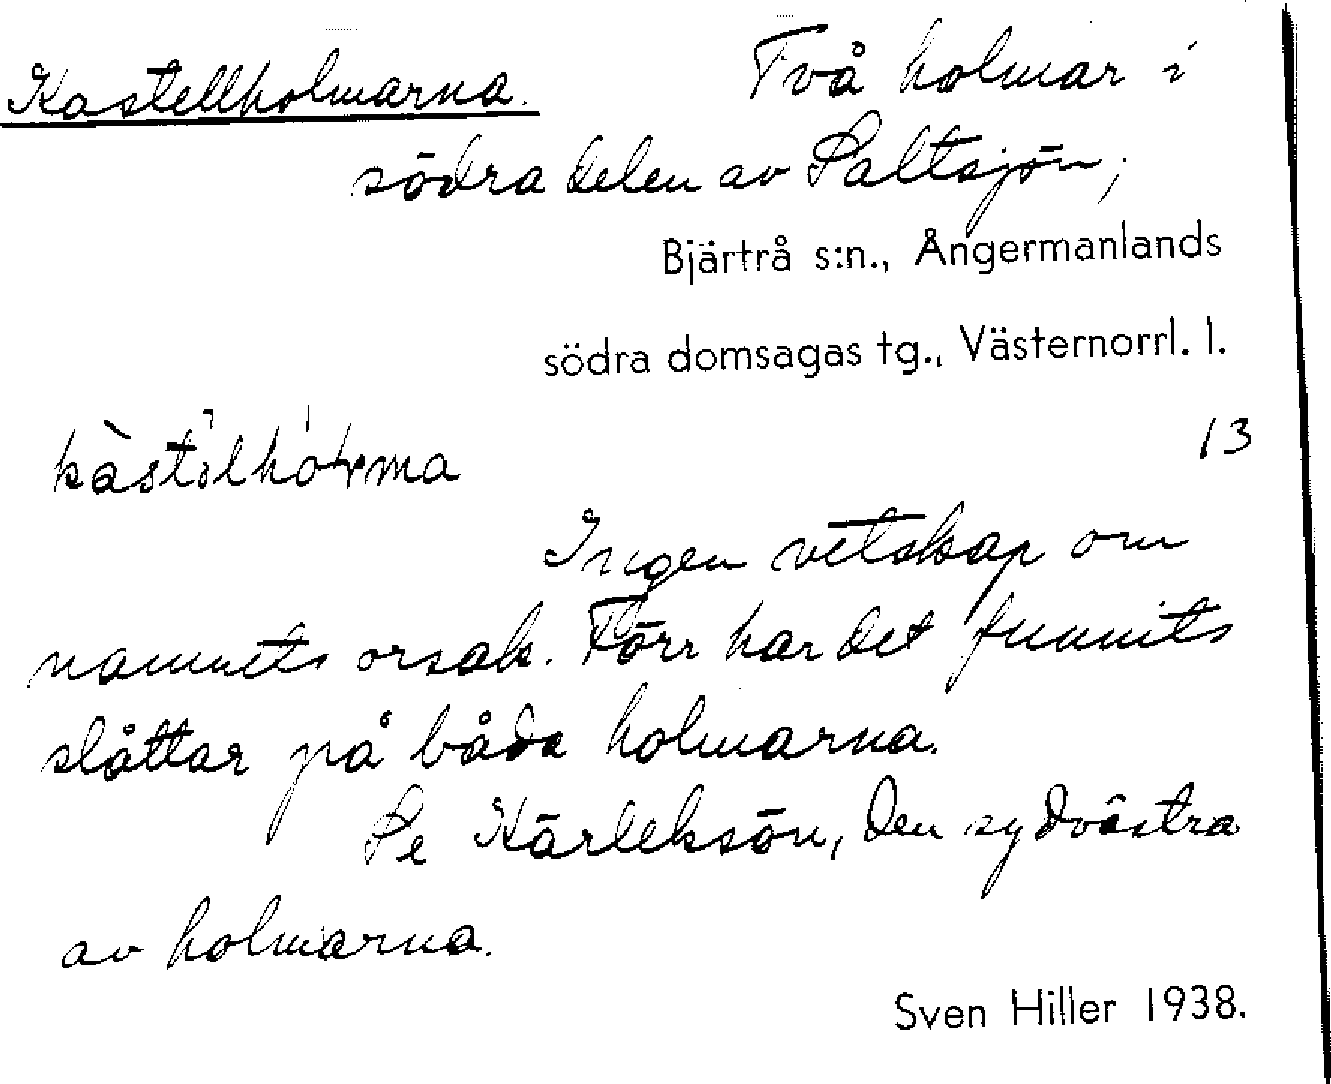 Kastellholmarna. Två holmar i
södra delen av Saltsjön;
Bjärtrå s:n., Ångermanlands
södra domsagas tg., Västernorrl. l.
13
Ingen vetskap om
namnets orsak. Förr har det funnits
slåttar på båda holmarna.
Se Kärleksön, den sydvästra
av holmarna.
Sven Hiller 1938.